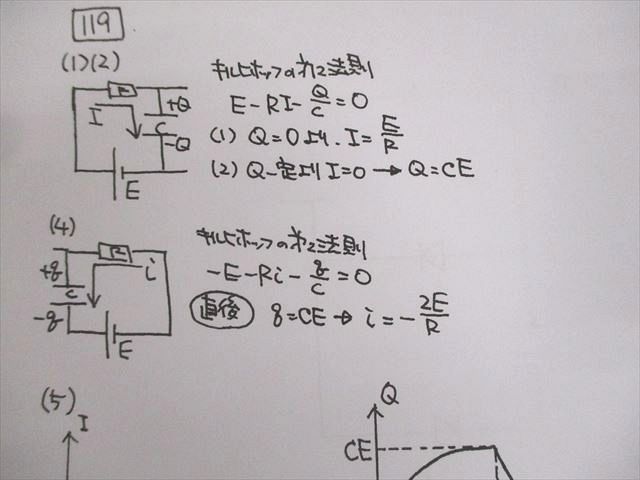 119
(1)(2)
キルヒホッフの第2法則
E - RI - Q/C = 0
(1) Q=0より、I = E/R
(2) Q一定よりI=0 → Q=CE
R
I
+Q
C
-Q
E
(4)
キルヒホッフの第2法則
-E - Ri - q/C = 0
直後 q=CE → i = - 2E/R
R
+q
i
C
-q
E
(5)
I
Q
CE